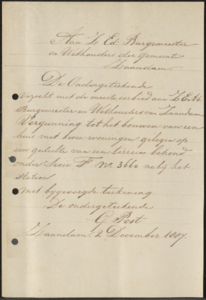 Aan Z. Ed. Burgemeester
en Wethouders der Gemeente
Zaandam
De Ondergeteekende
verzoekt met de meeste eerbied aan Z.E.
Burgemeester en Wethouders van Zaandam
Vergunning tot het bouwen van een
huis met twee woningen gelegen op
een gedeelte van een terrein bekend
onder Sectie F No. 3660 nabij het
Station
met bijgevoegde teekening
De ondergeteekende
G. Post
Zaandam 2 December 1887.